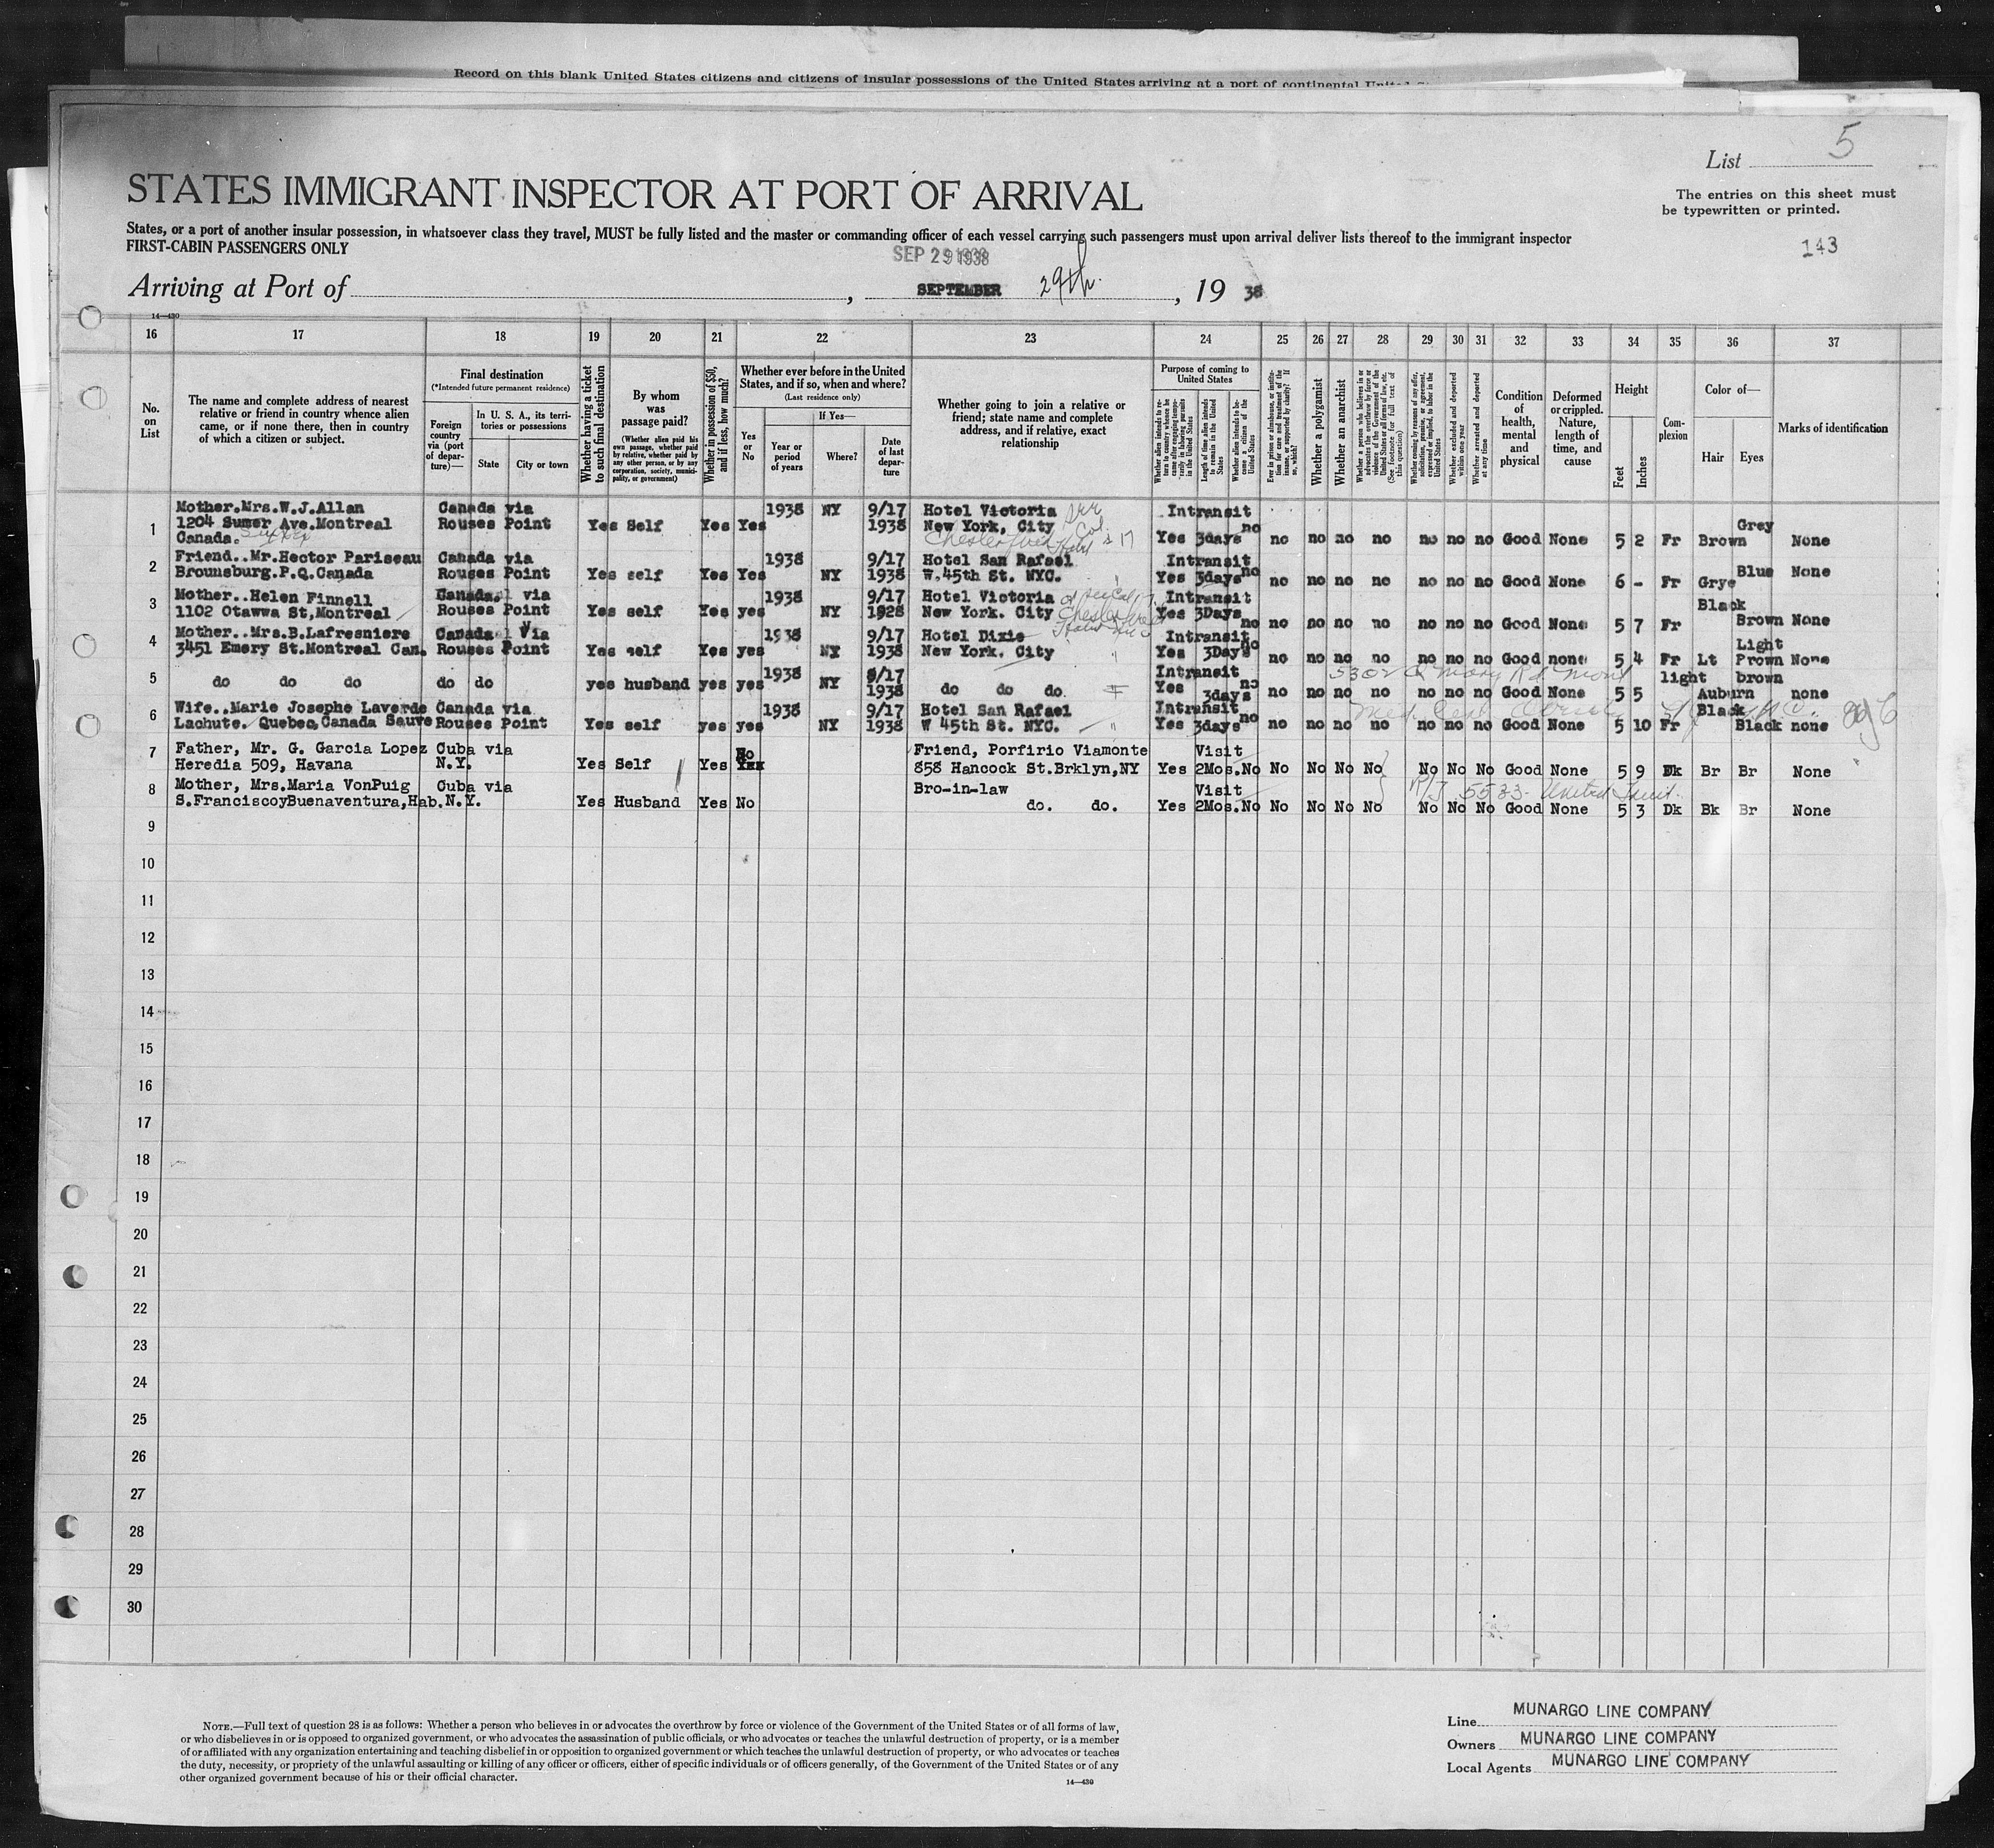 Record on this blank United States citizens and citizens of insular possessions of the United States arriving at a port of continental
List 5
STATES IMMIGRANT INSPECTOR AT PORT OF ARRIVAL
The entries on this sheet must
be typewritten or printed.
States, or a port of another insular possession, in whatsoever class they travel, MUST be fully listed and the master or commanding officer of each vessel carrying such passengers must upon arrival deliver lists thereof to the immigrant inspector
FIRST-CABIN PASSENGERS ONLY
143
SEP 29 1938
Arriving at Port of , SEPTEMBER 29th. , 19 38
14—430
16 17 18 19 20 21 22 23 24 25 26 27 28 29 30 31 32 33 34 35 36 37
No. on List
The name and complete address of nearest relative or friend in country whence alien came, or if none there, then in country of which a citizen or subject.
Final destination
(*Intended future permanent residence)
Foreign country via (port of departure)—
In U. S. A., its territories or possessions
State
City or town
Whether having a ticket to such final destination
By whom was passage paid?
(Whether alien paid his own passage, whether paid by relative, whether paid by any other person, or by any corporation, society, municipality, or government)
Whether in possession of $50, and if less, how much?
Whether ever before in the United States, and if so, when and where?
(Last residence only)
Yes or No
If Yes—
Year or period of years
Where?
Date of last departure
Whether going to join a relative or friend; state name and complete address, and if relative, exact relationship
Purpose of coming to United States
Whether alien intends to return to country whence he came after engaging temporarily in laboring pursuits in the United States
Length of time alien intends to remain in the United States
Whether alien intends to become a citizen of the United States
Ever in prison or almshouse, or institution for care and treatment of the insane, or supported by charity? If so, which?
Whether a polygamist
Whether an anarchist
Whether a person who believes in or advocates the overthrow by force or violence of the Government of the United States or all forms of law, etc. (See footnote for full text of this question)
Whether coming by reasons of any offer, solicitation, promise, or agreement, expressed or implied, to labor in the United States
Whether excluded and deported within one year
Whether arrested and deported at any time
Condition of health, mental and physical
Deformed or crippled. Nature, length of time, and cause
Height
Feet
Inches
Complexion
Color of—
Hair
Eyes
Marks of identification
Mother.Mrs.W.J.Allan Canada via 1938 NY 9/17 Hotel Victoria Intransit
1 1204 Sumer Ave.Montreal Rouses Point Yes Self Yes Yes 1938 New York, City no Grey
Canada. Chesterfield Hotel Yes 3days no no no no no no no Good None 5 2 Fr Brown None
Friend..Mr.Hector Pariseau Canada via 1938 9/17 Hotel San Rafael Intransit
2 Brounsburg.P.Q.Canada Rouses Point Yes self Yes Yes NY 1938 W.45th St. NYC. Yes 3days no no no no no no no no Good None 6 - Fr Grye Blue None
Mother..Helen Finnell Canada. via 1938 9/17 Hotel Victoria Intransit
3 1102 Otawwa St,Montreal Rouses Point Yes self Yes yes NY 1928 New York. City Yes 3Days no no no no no no no no Good None 5 7 Fr Black Brown None
Mother..Mrs.B.Lafresniere Canada Via 1938 9/17 Hotel Dixie Intransit
4 3451 Emery St.Montreal Can. Rouses Point Yes self Yes yes NY 1938 New York. City Yes 3Days no no no no no no no no Good none 5 4 Fr Lt Light Prown None
5 do do do do do yes husband yes yes 1938 NY 9/17 1938 do do do. Intransit Yes 3days no no no no no no no no Good None 5 5 light Auburn brown none
Wife..Marie Josephe Laverde Canada via 1938 9/17 Hotel San Rafael Intransit
6 Lachute. Quebec,Canada Sauve Rouses Point Yes self yes yes NY 1938 W 45th St. NYC. Yes 3days no no no no no no no no Good None 5 10 Fr Black Black none
7 Father, Mr. G. Garcia Lopez Cuba via No Friend, Porfirio Viamonte Visit
Heredia 509, Havana N.Y. Yes Self Yes 858 Hancock St.Brklyn,NY Yes 2Mos.No No No No No No No No Good None 5 9 Dk Br Br None
8 Mother, Mrs.Maria VonPuig Cuba via Bro-in-law Visit
S.FranciscoyBuenaventura,Hab.N.Y. Yes Husband Yes No do. do. Yes 2Mos.No No No No No No No No Good None 5 3 Dk Bk Br None
9
10
11
12
13
14
15
16
17
18
19
20
21
22
23
24
25
26
27
28
29
30
NOTE.—Full text of question 28 is as follows: Whether a person who believes in or advocates the overthrow by force or violence of the Government of the United States or of all forms of law,
or who disbelieves in or is opposed to organized government, or who advocates the assassination of public officials, or who advocates or teaches the unlawful destruction of property, or is a member
of or affiliated with any organization entertaining and teaching disbelief in or opposition to organized government or which teaches the unlawful destruction of property, or who advocates or teaches
the duty, necessity, or propriety of the unlawful assaulting or killing of any officer or officers, either of specific individuals or of officers generally, of the Government of the United States or of any
other organized government because of his or their official character.
14—430
Line MUNARGO LINE COMPANY
Owners MUNARGO LINE COMPANY
Local Agents MUNARGO LINE COMPANY